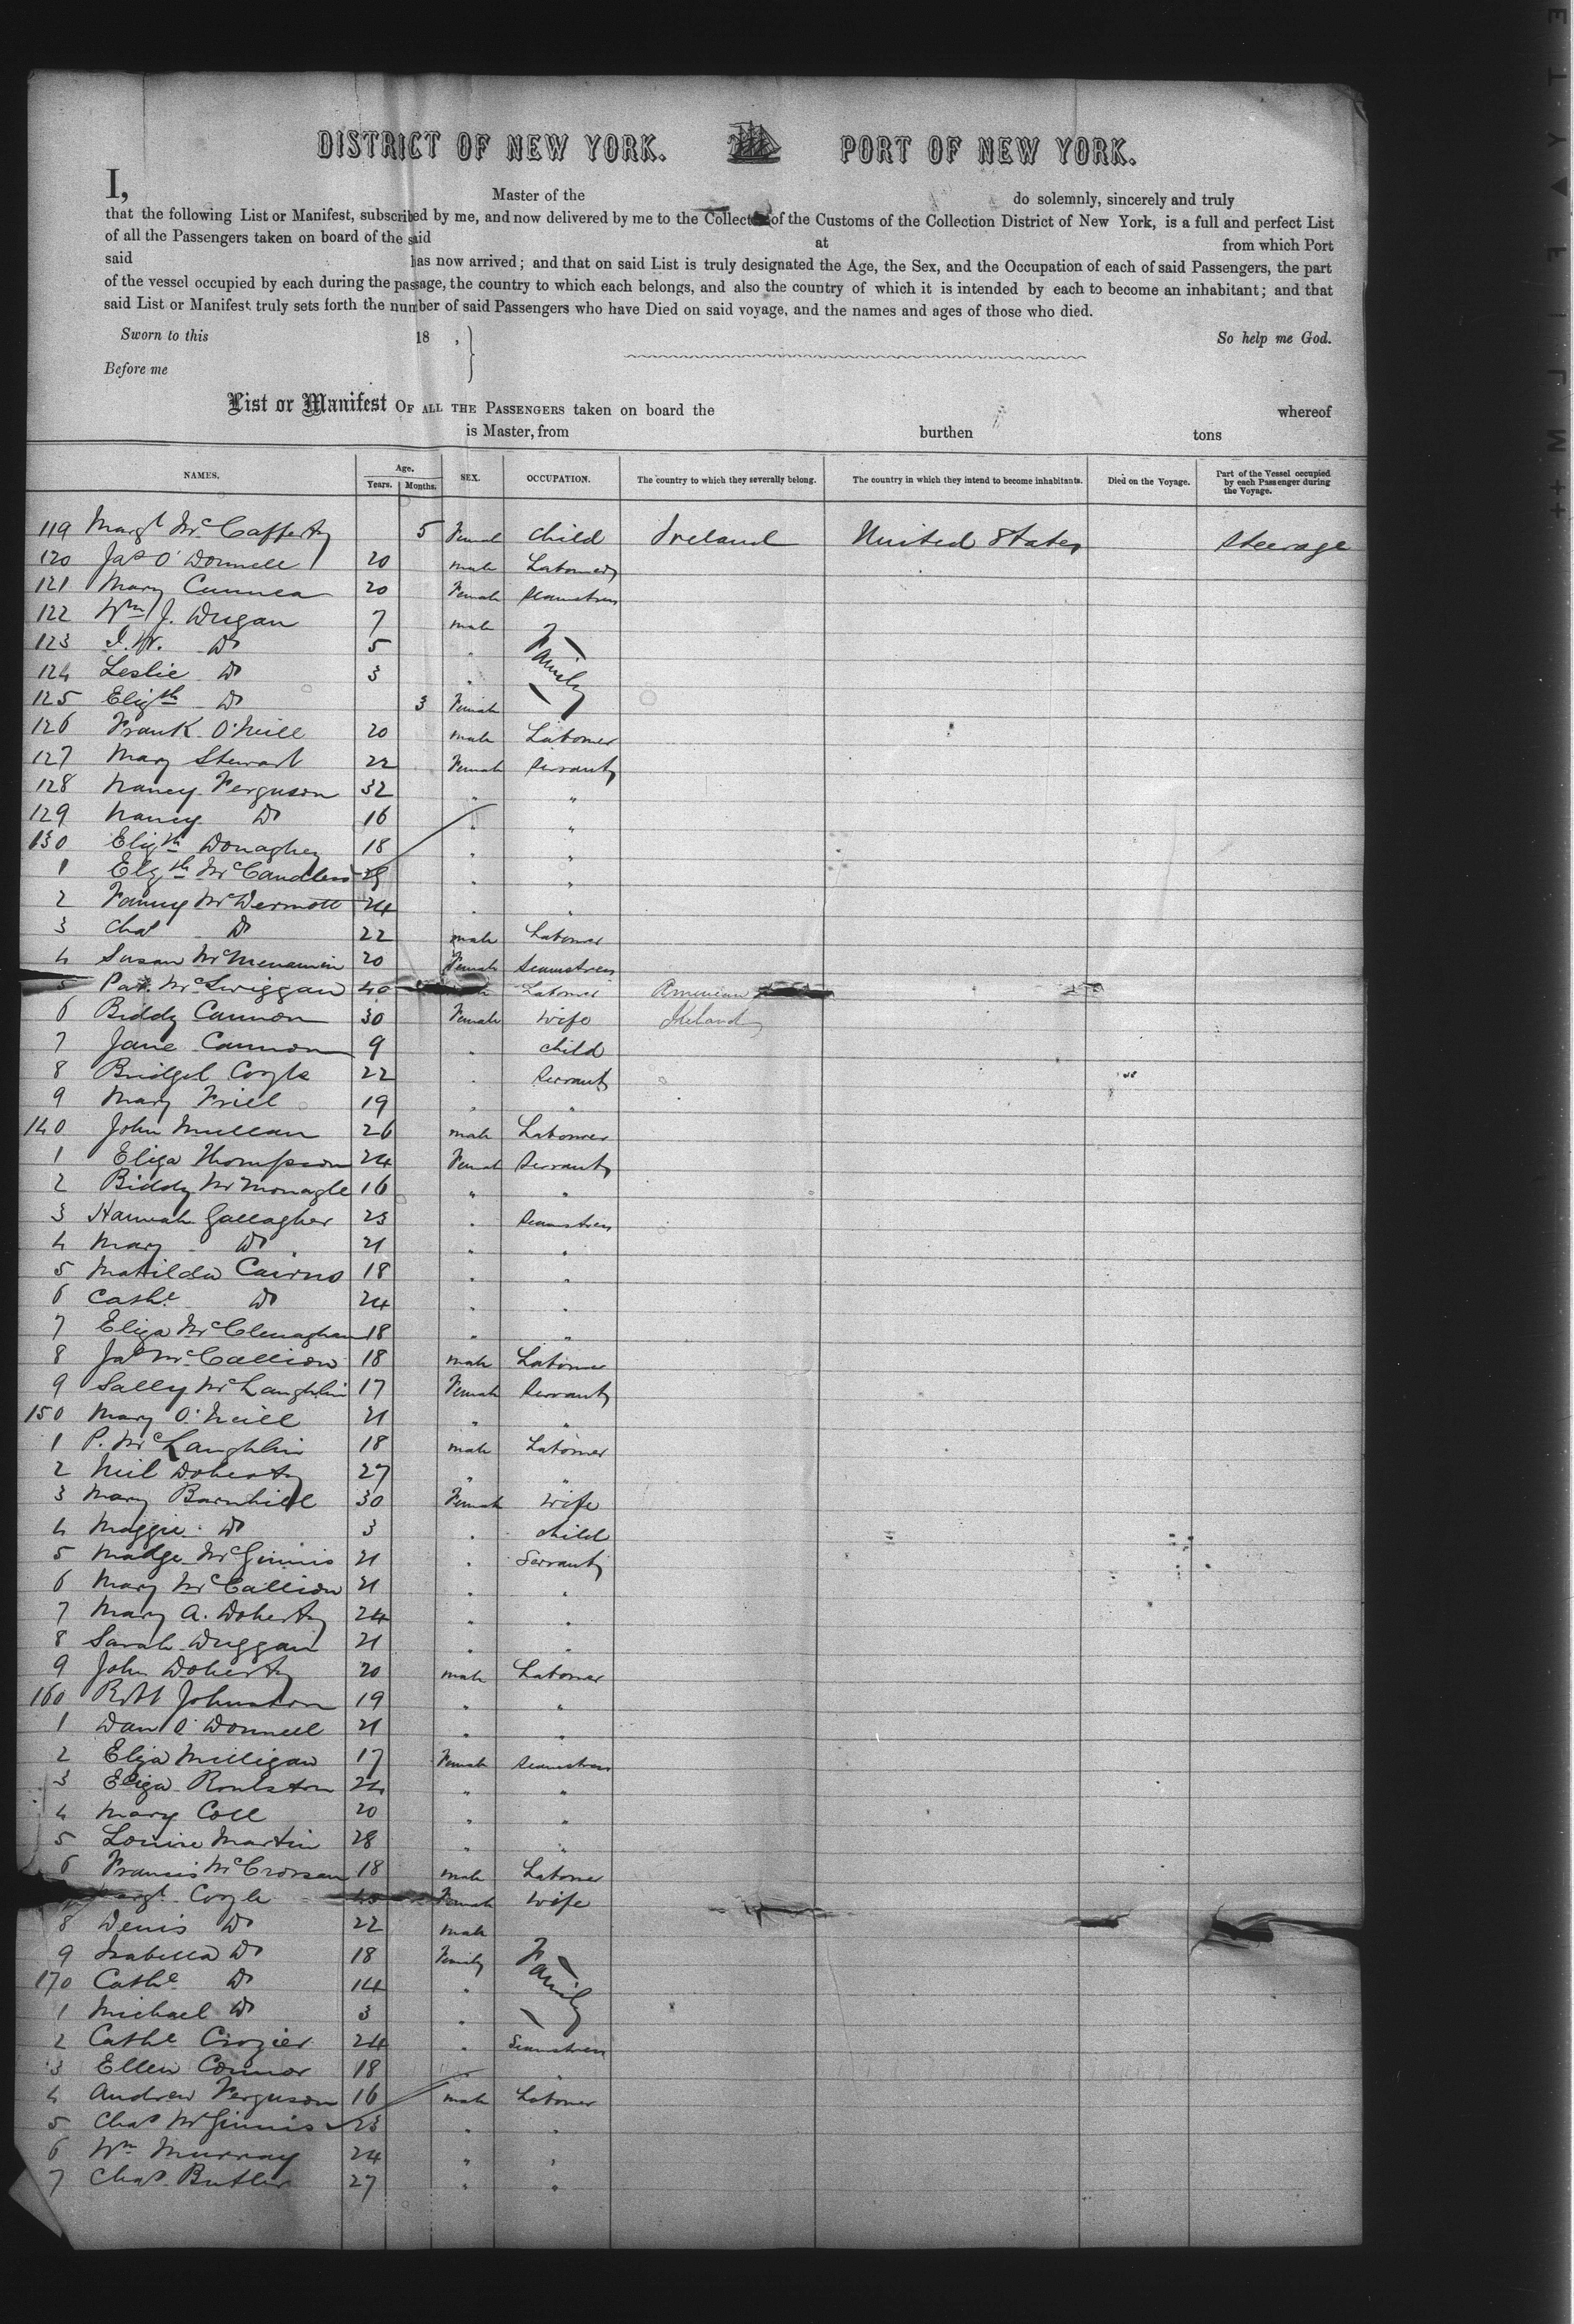 DISTRICT OF NEW YORK. PORT OF NEW YORK.
I, Master of the do solemnly, sincerely and truly
that the following List or Manifest, subscribed by me, and now delivered by me to the Collector of the Customs of the Collection District of New York, is a full and perfect List
of all the Passengers taken on board of the said at from which Port
said has now arrived; and that on said List is truly designated the Age, the Sex, and the Occupation of each of said Passengers, the part
of the vessel occupied by each during the passage, the country to which each belongs, and also the country of which it is intended by each to become an inhabitant; and that
said List or Manifest truly sets forth the number of said Passengers who have Died on said voyage, and the names and ages of those who died.
Sworn to this 18 , So help me God.
Before me
List or Manifest OF ALL THE PASSENGERS taken on board the whereof
is Master, from burthen tons
NAMES. Age. Years. Months. SEX. OCCUPATION. The country to which they severally belong. The country in which they intend to become inhabitants. Died on the Voyage. Part of the Vessel occupied by each Passenger during the Voyage.
119 Margt McCafferty 5 Female Child Ireland United States Steerage
120 Jas O'Donnell 20 male Labourer
121 Mary Cunnea 20 Female Seamstress
122 Wm J. Dugan 7 male Family
123 I. W. Do 5 "
124 Leslie Do 3 "
125 Elizth Do 3 Female
126 Frank O'Neill 20 male Labourer
127 Mary Stewart 22 Female Servant
128 Nancy Ferguson 32 " "
129 Nancy Do 16 " "
130 Elizth Donaghey 18 " "
1 Elizth McCandless " "
2 Fanny McDermott 24 " "
3 Chas Do 22 male Labourer
4 Susan McMenamin 20 Female Seamstress
5 Pat. McSwiggan 40 Labourer American
6 Biddy Cannon 30 Female Wife Ireland
7 Jane Cannon 9 " Child
8 Bridget Coyle 22 " Servant
9 Mary Friel 19 " "
140 John Mullan 26 male Labourer
1 Eliza Thompson 24 Female Servant
2 Biddy McMonagle 16 " "
3 Hannah Gallagher 23 " Seamstress
4 Mary Do 21 " "
5 Matilda Cairns 18 " "
6 Cathe Do 24 " "
7 Eliza McClenaghan 18 " "
8 Jas McCallion 18 male Labourer
9 Sally McLaughlin 17 Female Servant
150 Mary O'Neill 21 " "
1 P. McLaughlin 18 male Labourer
2 Neil Doherty 27 " "
3 Mary Barnhill 30 Female Wife
4 Maggie Do 3 " Child
5 Madge McGinnis 21 " Servant
6 Mary McCallion 21 " "
7 Mary A. Doherty 24 " "
8 Sarah Duggan 21 " "
9 John Doherty 20 male Labourer
160 Robt Johnston 19 " "
1 Dan O'Donnell 21 " "
2 Eliza Milligan 17 Female Seamstress
3 Eliza Roulston 24 " "
4 Mary Coll 20 " "
5 Louise Martin 28 " "
6 Francis McCrossan 18 male Labourer
Margt Coyle Female Wife
8 Denis Do 22 male Family
9 Isabella Do 18 Female
170 Cathe Do 14 "
1 Michael Do 3 "
2 Cathe Crozier 24 " Seamstress
3 Ellen Connor 18 " "
4 Andrew Ferguson 16 male Labourer
5 Chas McGinnis 23 " "
6 Wm Murray 24 " "
7 Chas Butler 27 " "